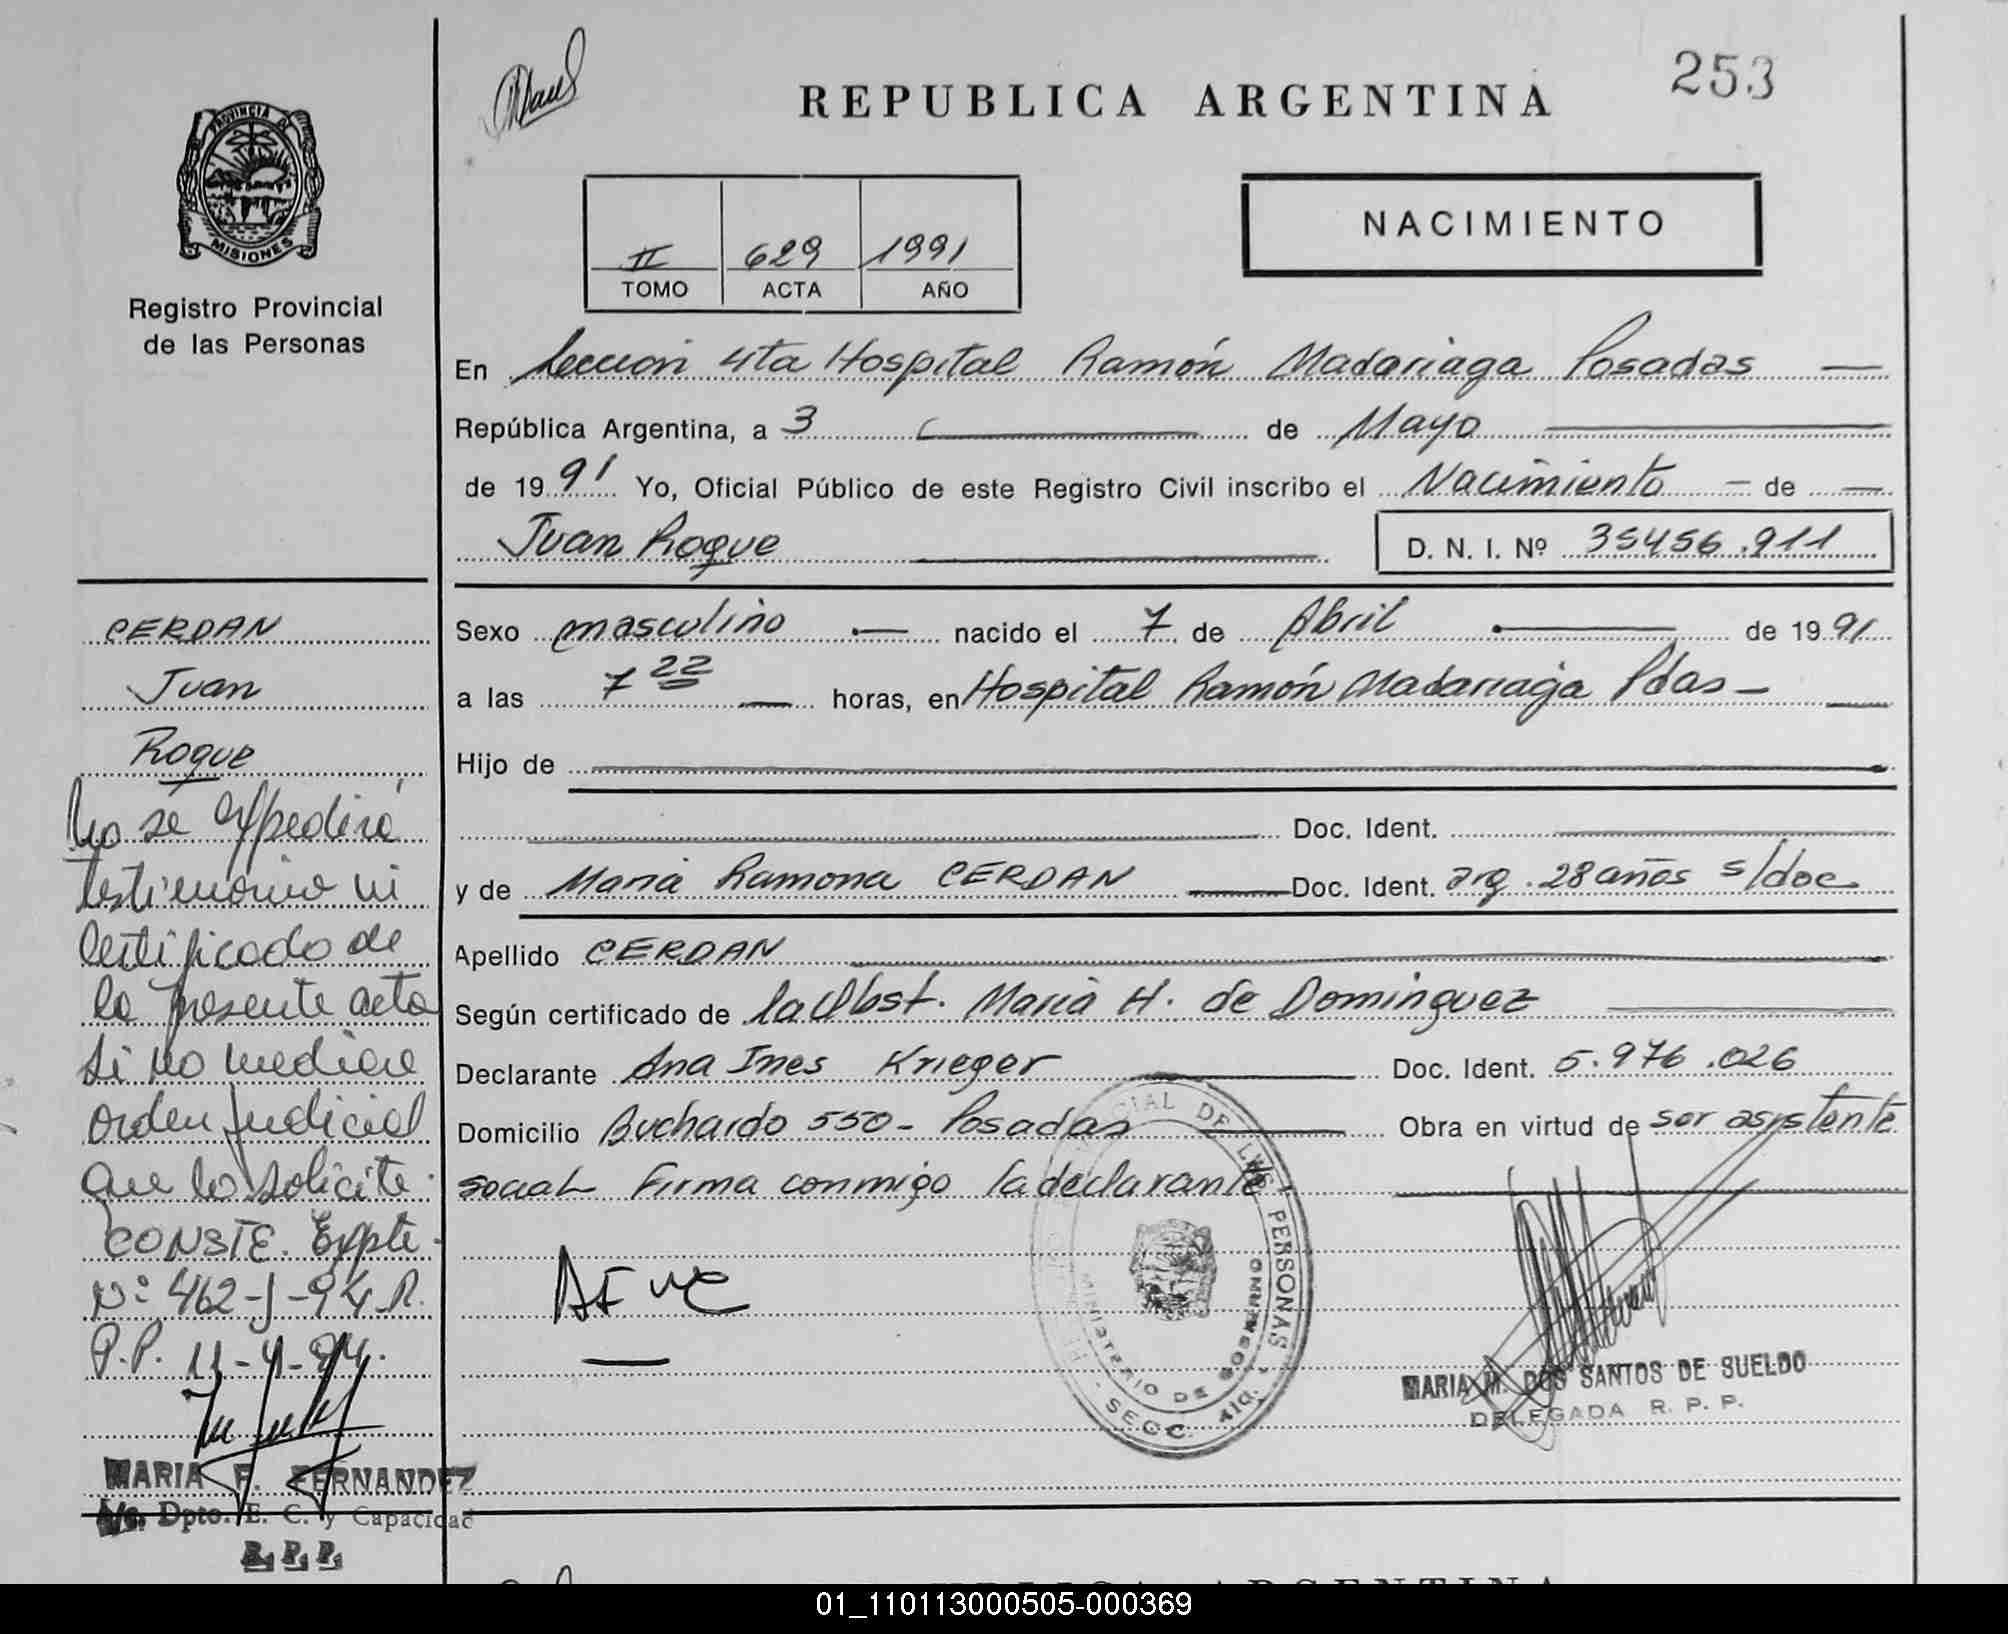 253
REPUBLICA ARGENTINA
PROVINCIA DE
MISIONES
Registro Provincial
de las Personas
NACIMIENTO
II 629 1991
TOMO ACTA AÑO
En Sección 4ta Hospital Ramón Madariaga Posadas
República Argentina, a 3 de Mayo
de 1991 Yo, Oficial Público de este Registro Civil inscribo el Nacimiento de
Juan Roque D. N. I. Nº 35456.911
CERDAN
Juan
Roque
No se expedirá
testimonio ni
certificado de
la presente acta
si no mediare
orden judicial
que lo solicite.
CONSTE. Expte.
Nº 462-J-94 R.
P.P. 11-4-94.
MARIA F. FERNANDEZ
A/C. Dpto. E. C. y Capacidad
R. P. P.
Sexo masculino nacido el 7 de Abril de 1991
a las 7 22 horas, en Hospital Ramón Madariaga Pdas
Hijo de
Doc. Ident.
y de Maria Ramona CERDAN Doc. Ident. arg. 28 años s/doc
Apellido CERDAN
Según certificado de la Obst. Maria H. de Dominguez
Declarante Ana Ines Krieger Doc. Ident. 5.976.026
Domicilio Buchardo 550 - Posadas Obra en virtud de ser asistente
social Firma conmigo la declarante
CIAL DE LAS PERSONAS
MINISTERIO DE GOBIERNO
SECC. 4ta.
MARIA M. DOS SANTOS DE SUELDO
DELEGADA R. P. P.
01_110113000505-000369